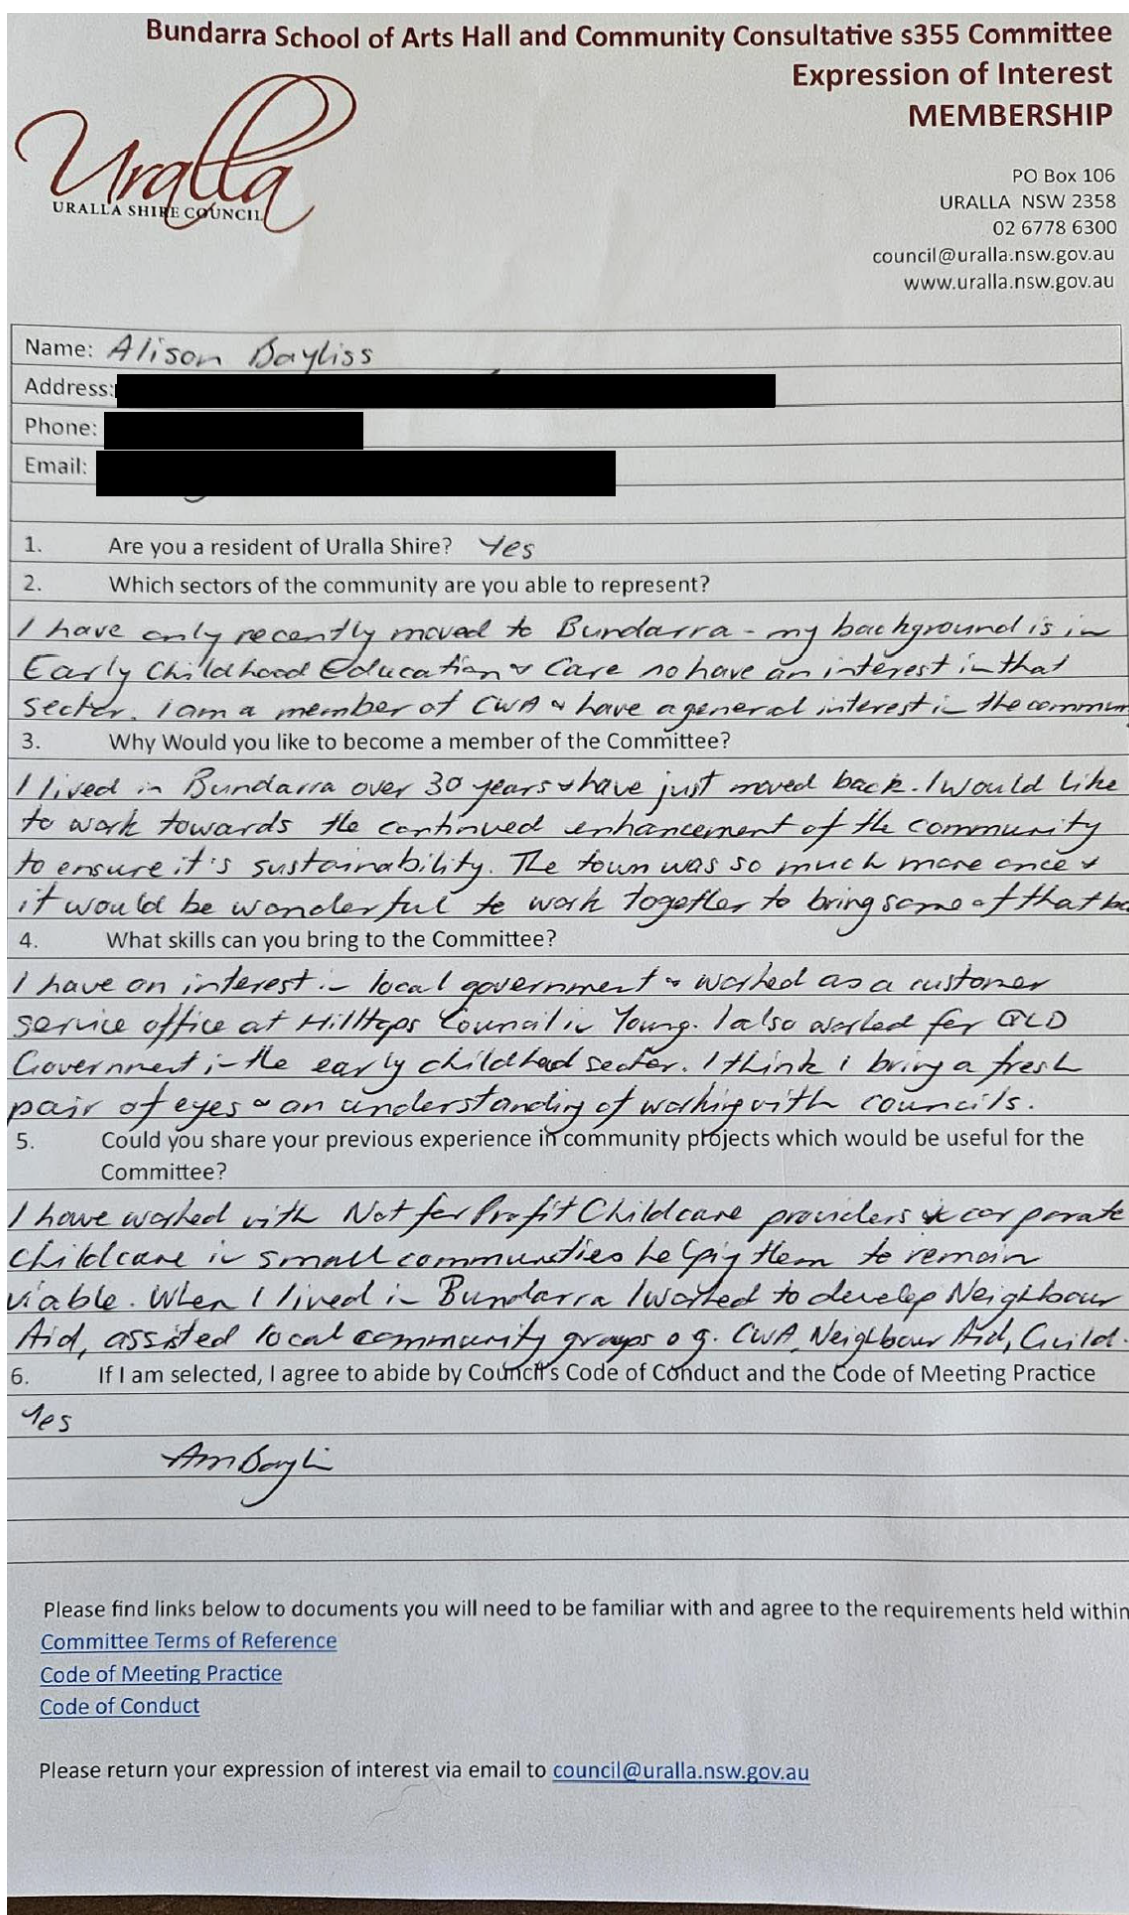 Bundarra School of Arts Hall and Community Consultative s355 Committee
Expression of Interest
MEMBERSHIP
Uralla
URALLA SHIRE COUNCIL
PO Box 106
URALLA NSW 2358
02 6778 6300
council@uralla.nsw.gov.au
www.uralla.nsw.gov.au
Name: Alison Bayliss
Address:
Phone:
Email:
1. Are you a resident of Uralla Shire? Yes
2. Which sectors of the community are you able to represent?
I have only recently moved to Bundarra - my background is in
Early Childhood Education & Care so have an interest in that
sector. I am a member of CWA & have a general interest in the commun
3. Why Would you like to become a member of the Committee?
I lived in Bundarra over 30 years & have just moved back. I would like
to work towards the continued enhancement of the community
to ensure it's sustainability. The town was so much more once &
it would be wonderful to work together to bring some of that ba
4. What skills can you bring to the Committee?
I have an interest in local government & worked as a customer
service office at Hilltops Council in Young. I also worked for QLD
Government in the early childhood sector. I think I bring a fresh
pair of eyes & an understanding of working with councils.
5. Could you share your previous experience in community projects which would be useful for the
Committee?
I have worked with Not for Profit Childcare providers & corporate
childcare in small communities helping them to remain
viable. When I lived in Bundarra I worked to develop Neighbour
Aid, assisted local community groups eg. CWA, Neighbour Aid, Guild.
6. If I am selected, I agree to abide by Council's Code of Conduct and the Code of Meeting Practice
Yes
AmBayli
Please find links below to documents you will need to be familiar with and agree to the requirements held within
Committee Terms of Reference
Code of Meeting Practice
Code of Conduct
Please return your expression of interest via email to council@uralla.nsw.gov.au